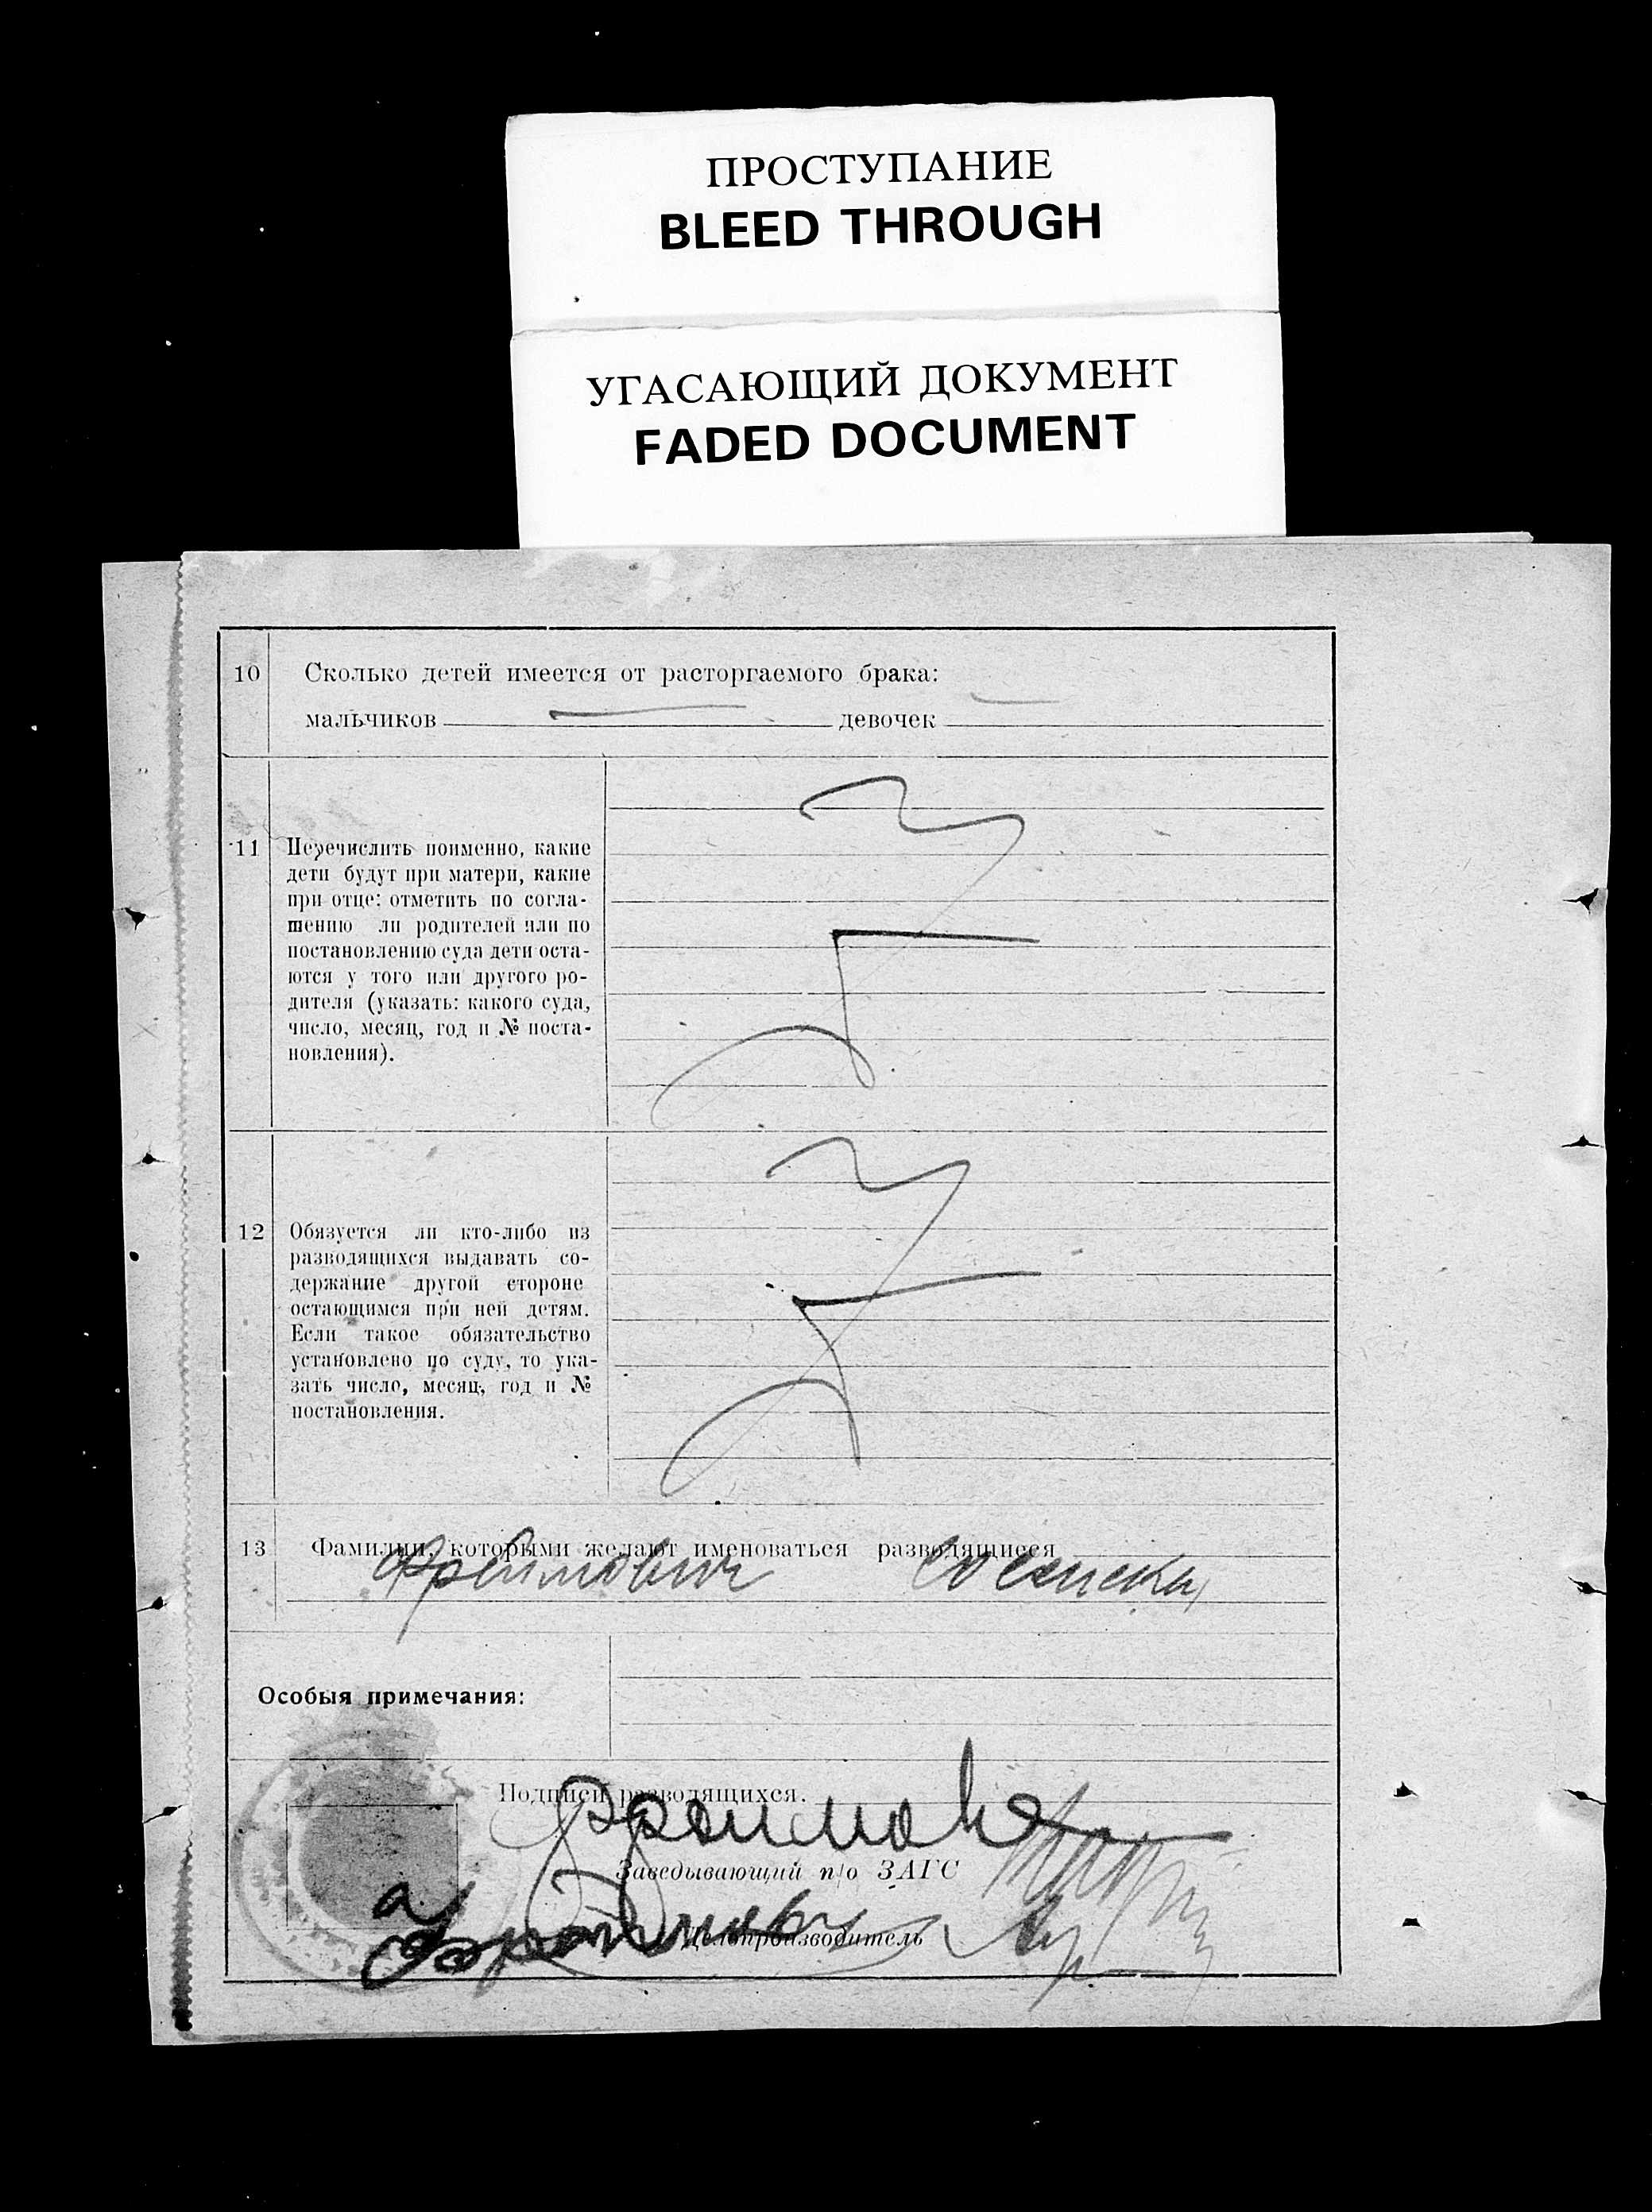 ПРОСТУПАНИЕ
BLEED THROUGH
УГАСАЮЩИЙ ДОКУМЕНТ
FADED DOCUMENT
10 Сколько детей имеется от расторгаемого брака:
мальчиков — девочек —
11 Перечислить поименно, какие
дети будут при матери, какие
при отце: отметить по согла-
шению ли родителей или по
постановлению суда дети оста-
ются у того или другого ро-
дителя (указать: какого суда,
число, месяц, год и № поста-
новления).
12 Обязуется ли кто-либо из
разводящихся выдавать со-
держание другой стороне
остающимся при ней детям.
Если такое обязательство
установлено по суду, то ука-
зать число, месяц, год и №
постановления.
13 Фамилии, которыми желают именоваться разводящиеся
Особыя примечания:
Подписи разводящихся.
Заведывающий п/о ЗАГС
Делопроизводитель